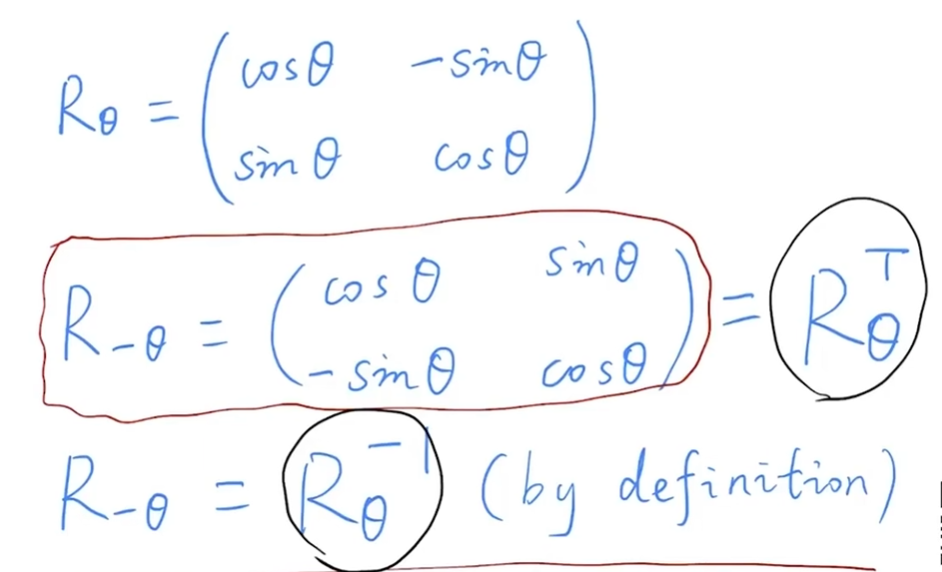 R_θ = ( cos θ  -sin θ
sin θ  cos θ )
R_{-θ} = ( cos θ  sin θ
-sin θ  cos θ ) = R_θ^T
R_{-θ} = R_θ^{-1} (by definition)